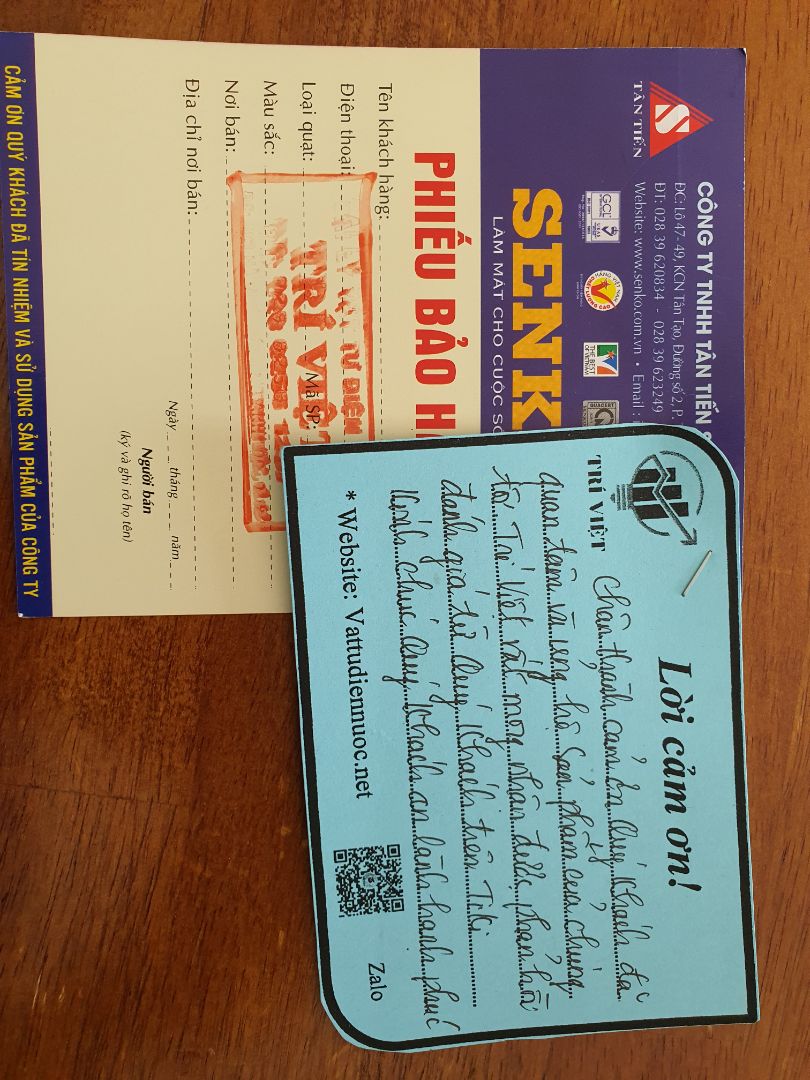 TÂN TIẾN
CÔNG TY TNHH TÂN TIẾN
ĐC: Lô 47- 49, KCN Tân Tạo, Đường số 2, P.
ĐT: 028 39 620834 - 028 39 623249
Website: www.senko.com.vn • Email :
GCL
UKAS
HÀNG VIỆT NAM
THE BEST
OF VIETNAM
QUACERT
SENK
LÀM MÁT CHO CUỘC SỐ
PHIẾU BẢO H
Tên khách hàng:
Điện thoại:
Loại quạt: Mã SP:
Màu sắc:
Nơi bán:
Địa chỉ nơi bán:
TƯ ĐIỆN
TRÍ VIỆT
Ngày tháng năm
Người bán
(ký và ghi rõ họ tên)
CẢM ƠN QUÝ KHÁCH ĐÃ TÍN NHIỆM VÀ SỬ DỤNG SẢN PHẨM CỦA CÔNG TY
TRÍ VIỆT
Lời cảm ơn!
Chân thành cảm ơn Quý khách đã
quan tâm và ủng hộ sản phẩm của chúng
tôi. Trí Việt rất mong nhận được phản hồi
đánh giá từ Quý khách trên Tiki
Kính chúc Quý khách an lành hạnh phúc
* Website: Vattudiennuoc.net
Zalo